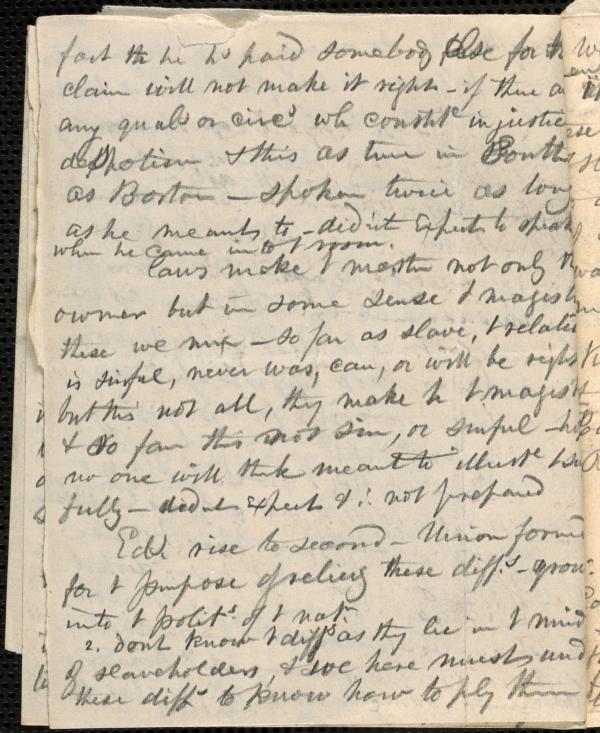 fact th he hs paid somebody else for th
claim will not make it right - if there a
any quals or circs wh constite injustice
despotism & this as true in South
as Boston - spoken twice as long
as he meants to - didn't Expects to speak
when he came into t room.
Laws make t master not only th
owner but in some sense t magist
these we mix - so far as slave, t relati
is sinful, never was, can, or will be right
but this not all, they make h t magist
& so far this not sin, or sinful -
no one will think meant to illuste
fully - didnt Expects & not prepared
rise to second - Union formed
for t purpose of relievg these diffs - grow
into t polits of t nat.
2. dont know t diffs as they lie in t mind
of slaveholders, & we here must und
these diffs to know how to ply them